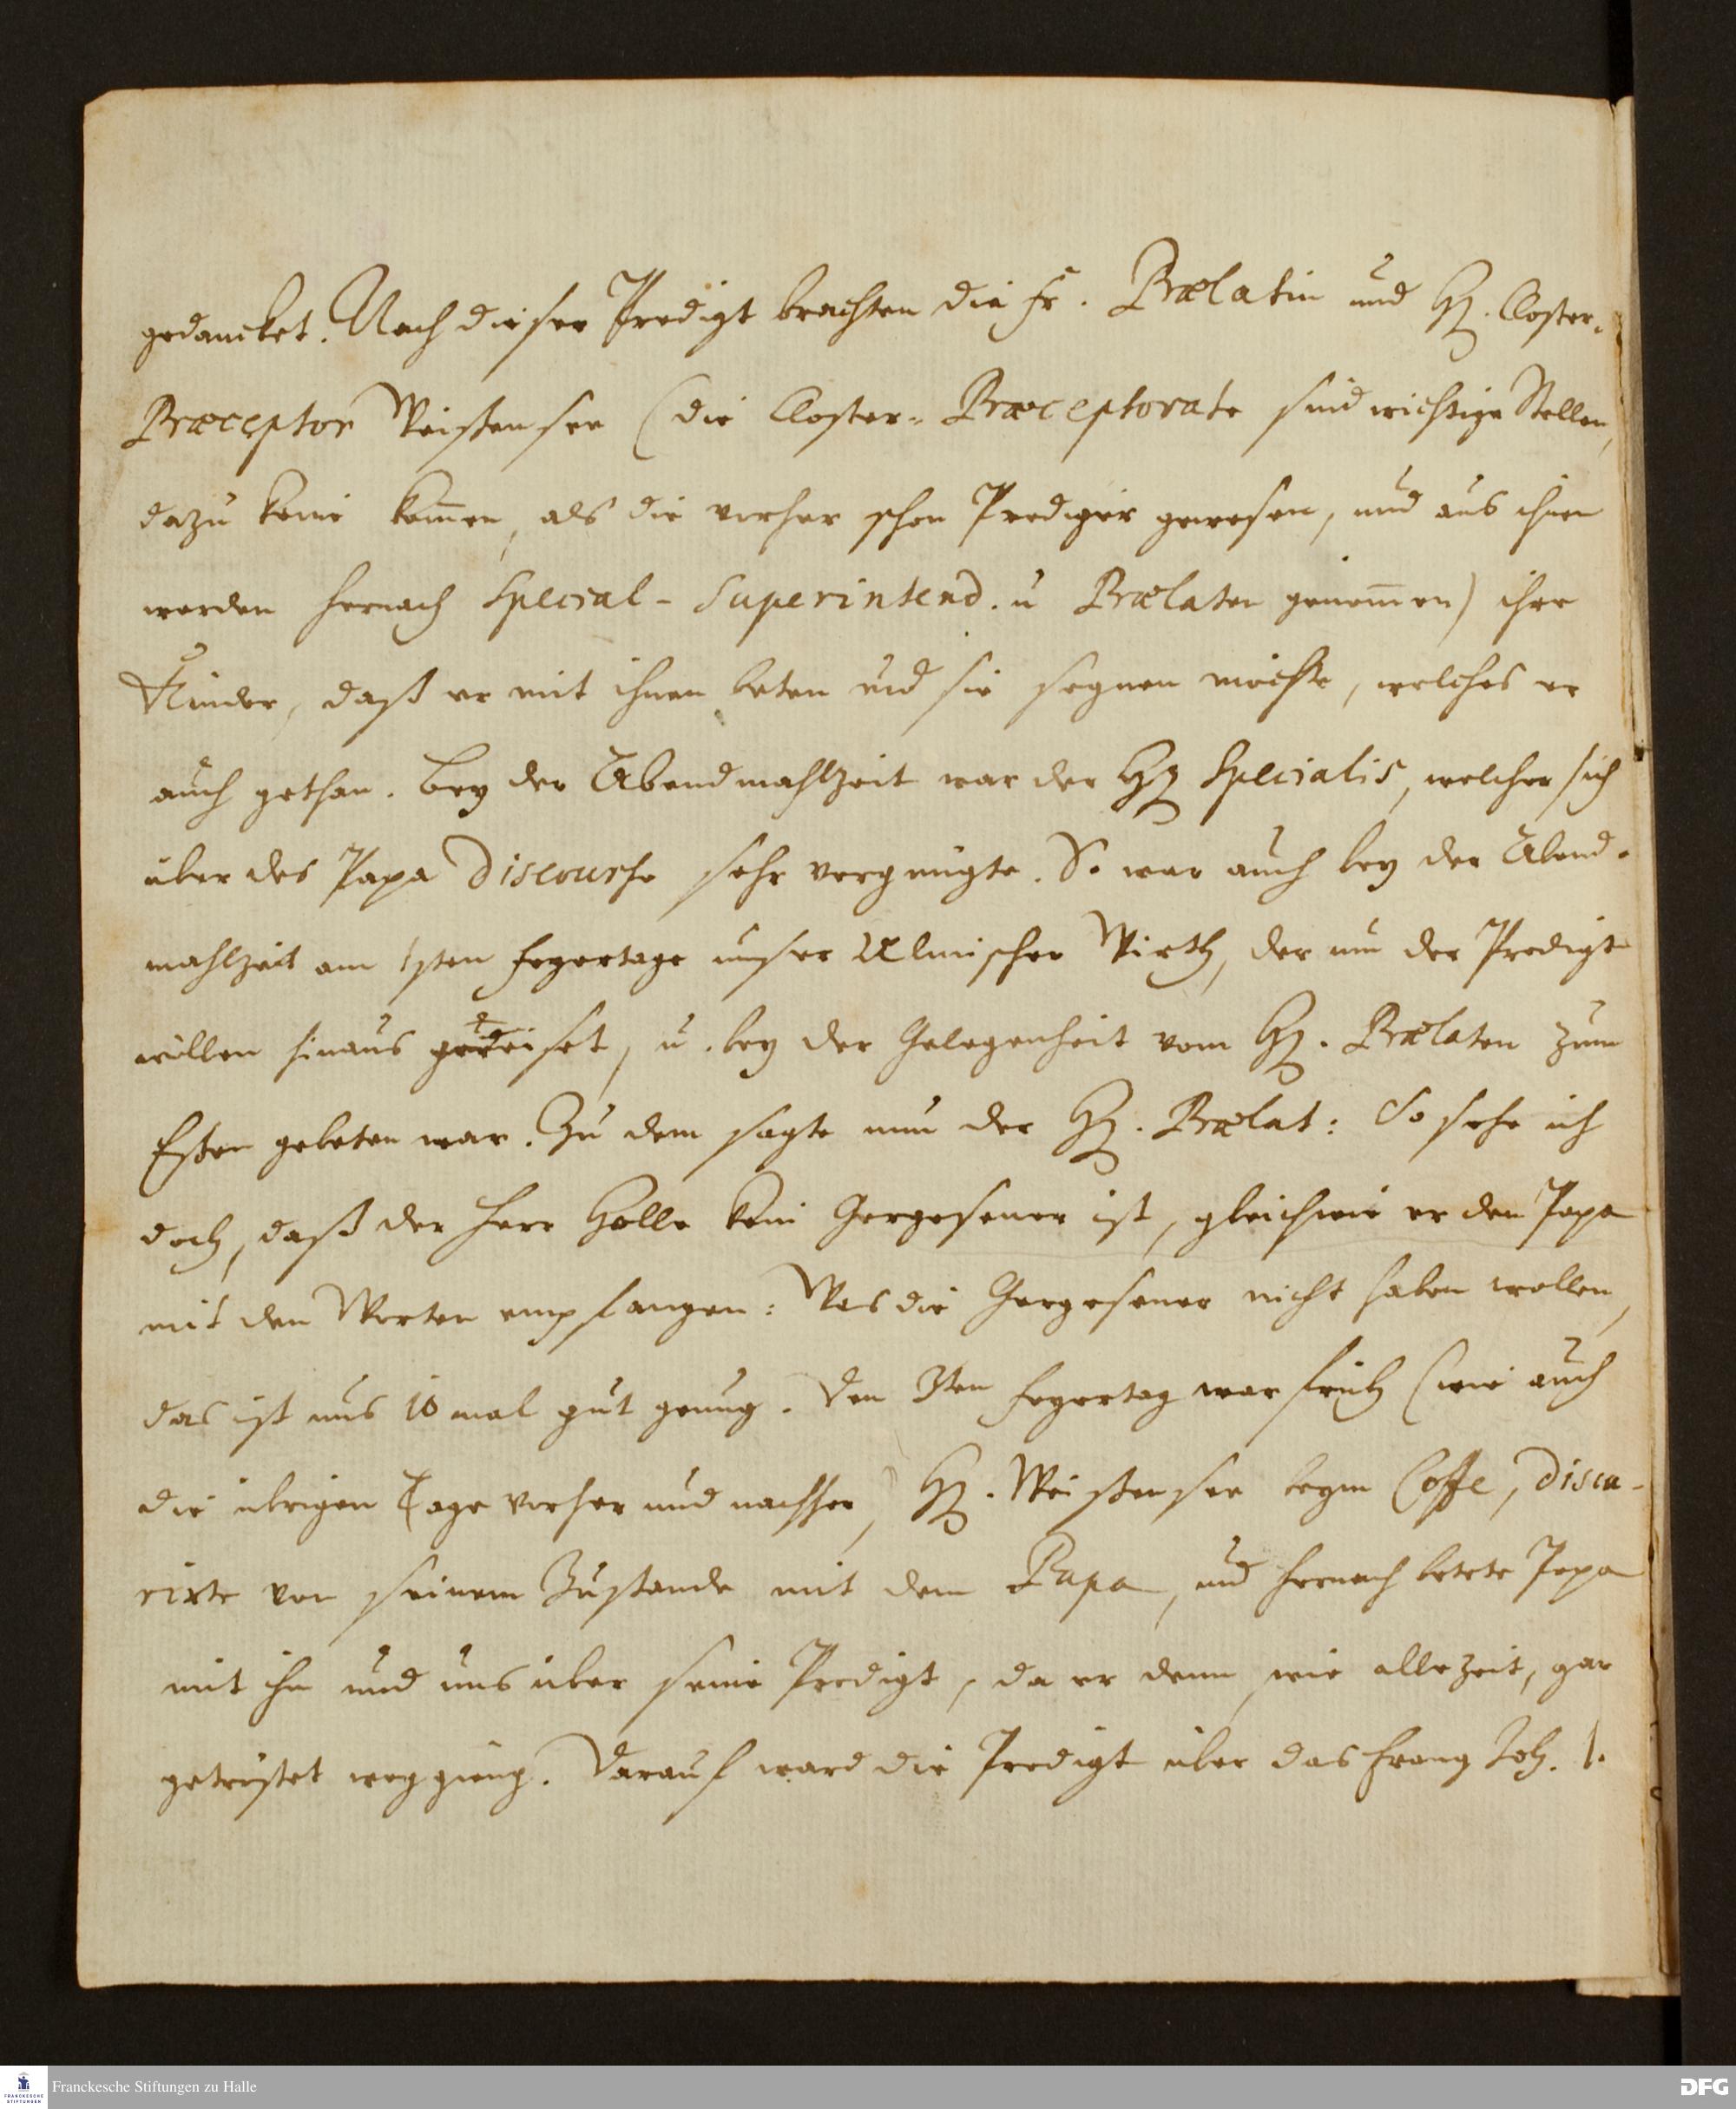 gedancket. Nach dieser Predigt brachten die Fr. Prælatin und H. Closter-
Præceptor Weissensee (die Closter-Præceptorate sind wichtige Stellen,
dazu keine kom̄en, als die vorher schon Prediger gewesen, und aus ihnen
werden hernach Special-Superintend. u Prælaten genom̄en) ihre
Kinder, daß er mit ihnen beten und sie segnen möchte, welches er
auch gethan. Bey der Abendmahlzeit war der H Specialis, welcher sich
über des Papa Discourse sehr vergnügte. So war auch bey der Abend-
mahlzeit am 1sten Feyertage unser Ulmischer Wirth, der um der Predigt
willen hinaus gereiset, u. bey der Gelegenheit vom H. Prælaten zum
Essen gebeten war. Zu dem sagte nun der H. Prælat: So sehe ich
doch, daß der Herr Holle kein Gergesener ist, gleichwie er den Papa
mit den Worten empfangen: Was die Gergesener nicht haben wollen,
das ist uns 10 mal gut genug. Den 3ten Feyertag war früh (wie auch
die übrigen Tage vorher und nachher) H. Weissensee beym Coffe, discu-
rirte von seinem Zustande mit dem Papa, und hernach betete Papa
mit ihm und uns über seine Predigt, da er denn, wie allezeit, gar
getröstet weggieng. Darauf ward die Predigt über das Evang Joh. 1.
Franckesche Stiftungen zu Halle
FRANCKESCHE STIFTUNGEN
DFG